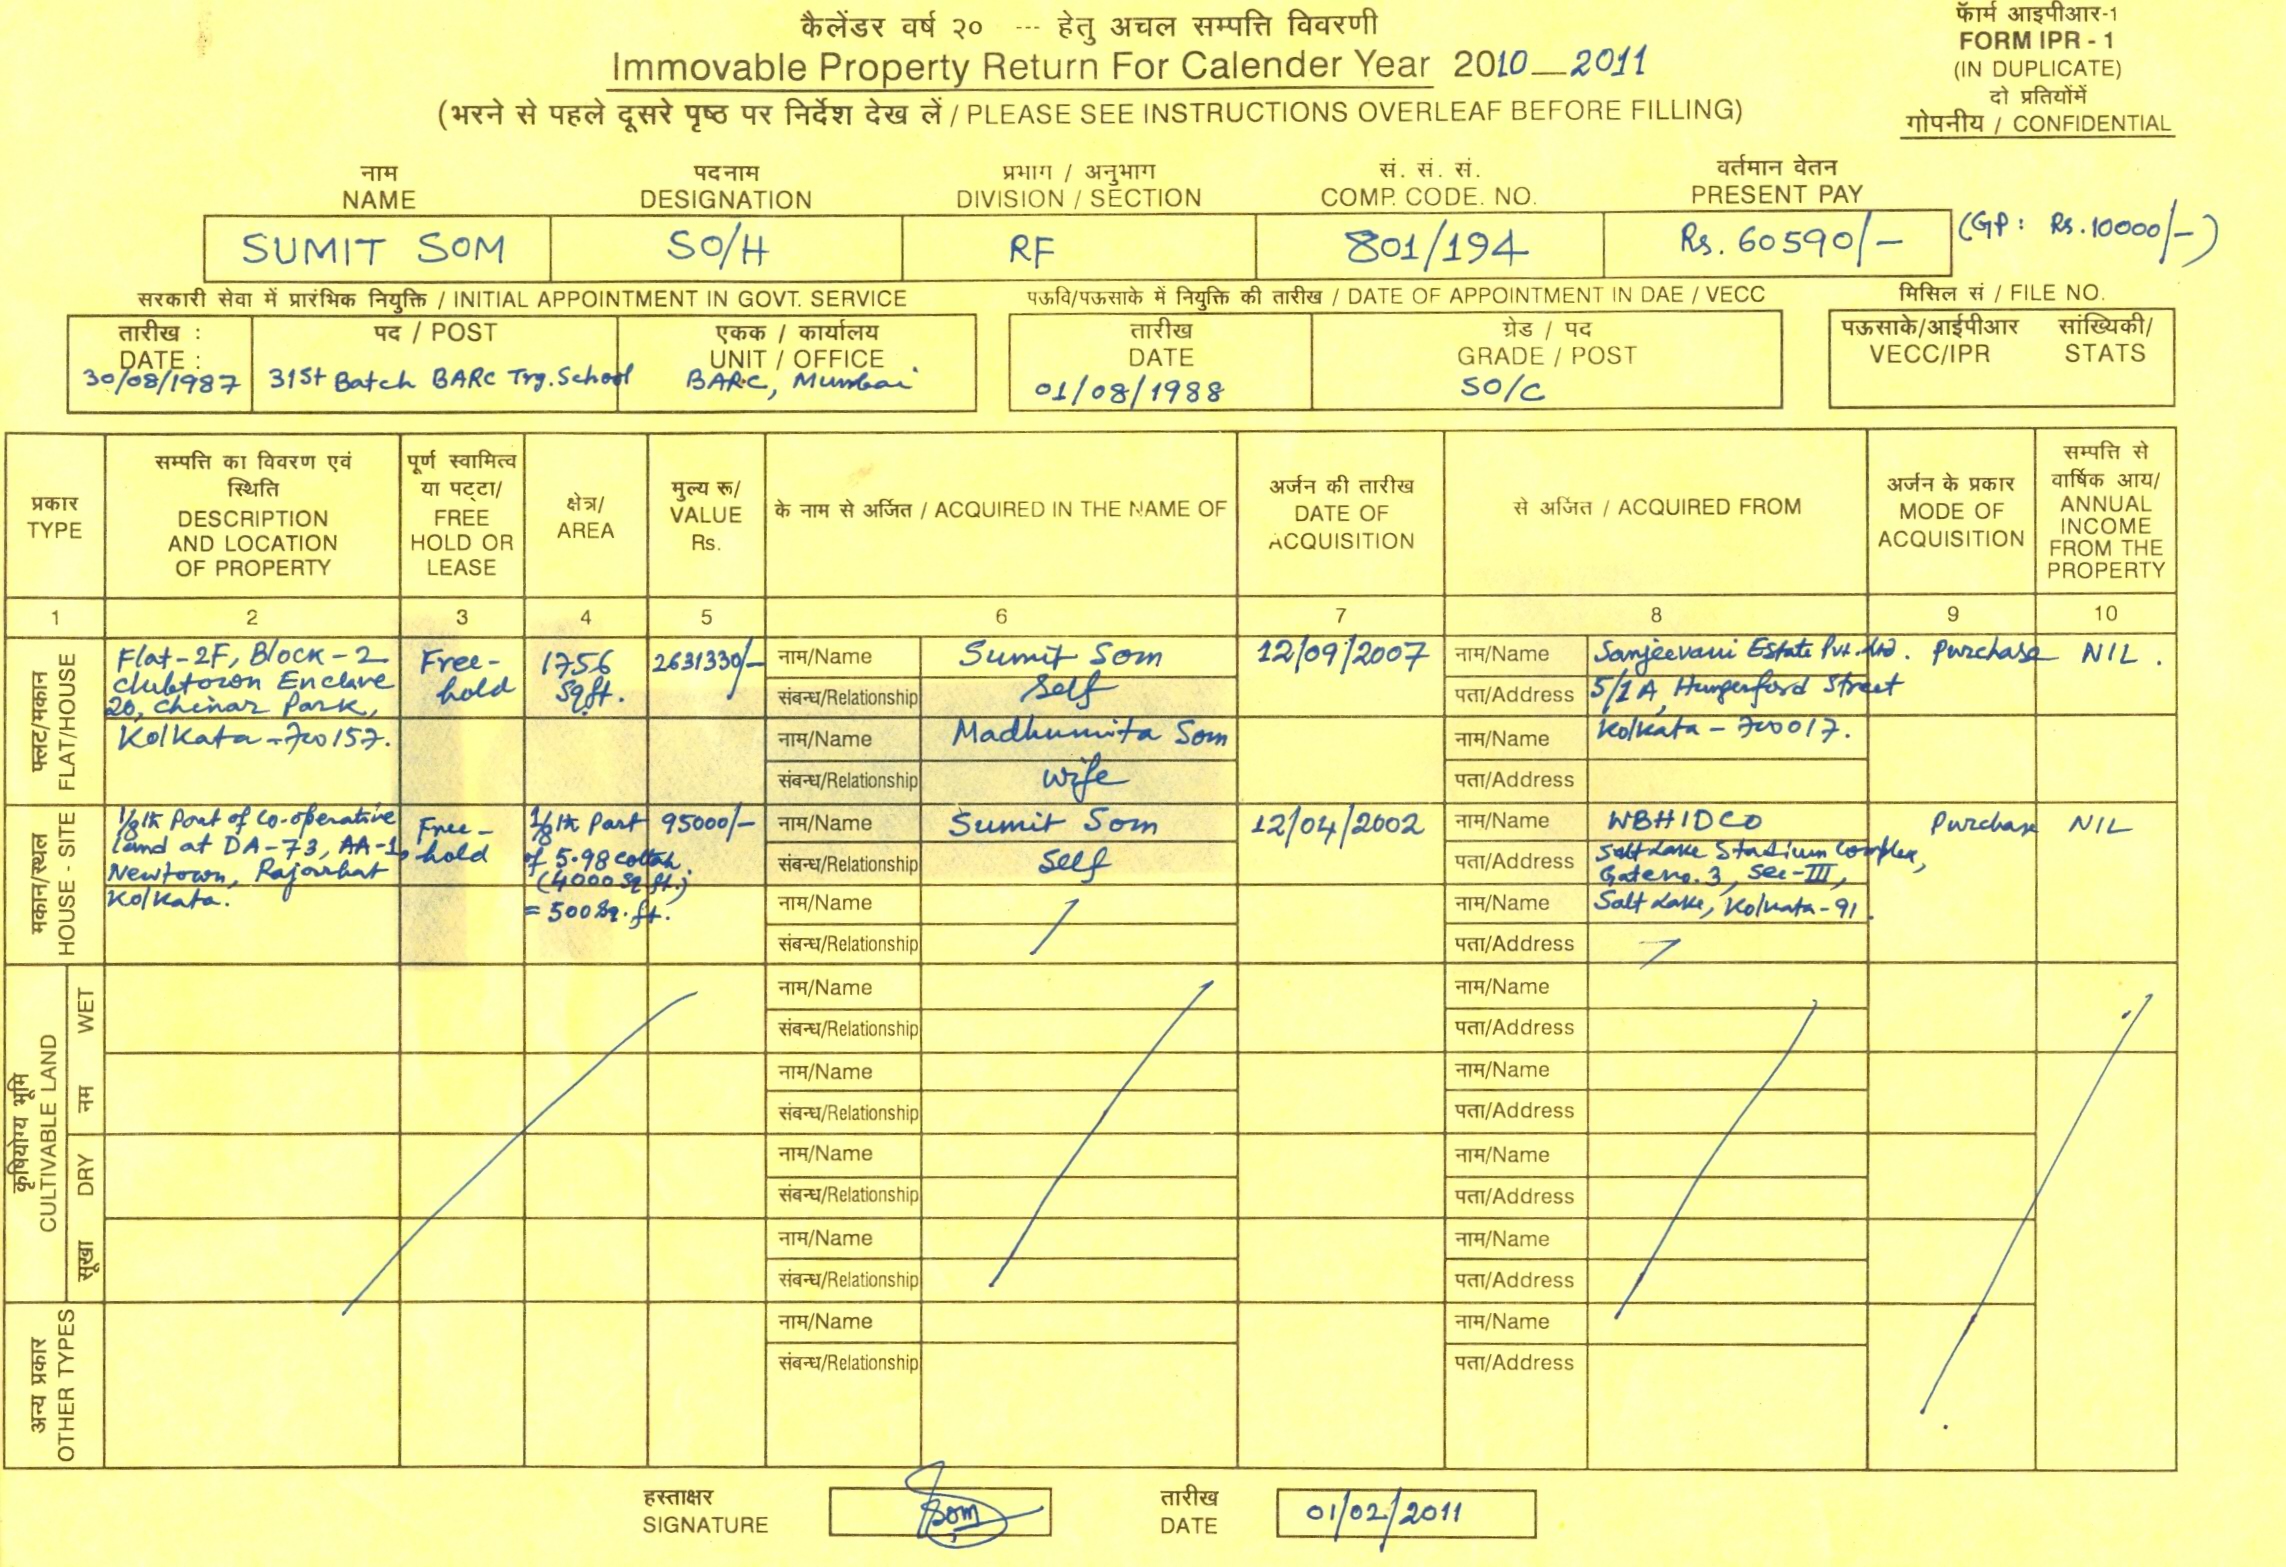 कैलेंडर वर्ष २० --- हेतु अचल सम्पत्ति विवरणी
Immovable Property Return For Calender Year 2010 — 2011
(भरने से पहले दूसरे पृष्ठ पर निर्देश देख लें / PLEASE SEE INSTRUCTIONS OVERLEAF BEFORE FILLING)
फॅार्म आइपीआर-1
FORM IPR - 1
(IN DUPLICATE)
दो प्रतियोंमें
गोपनीय / CONFIDENTIAL
नाम पदनाम प्रभाग / अनुभाग सं. सं. सं. वर्तमान वेतन
NAME DESIGNATION DIVISION / SECTION COMP. CODE. NO. PRESENT PAY
SUMIT SOM SO/H RF 801/194 Rs. 60590/- (GP: Rs. 10000/-)
सरकारी सेवा में प्रारंभिक नियुक्ति / INITIAL APPOINTMENT IN GOVT. SERVICE पऊवि/पऊसाके में नियुक्ति की तारीख / DATE OF APPOINTMENT IN DAE / VECC मिसिल सं / FILE NO.
तारीख : पद / POST एकक / कार्यालय तारीख ग्रेड / पद पऊसाके/आईपीआर सांख्यिकी/
DATE : UNIT / OFFICE DATE GRADE / POST VECC/IPR STATS
30/08/1987 31st Batch BARC Trg. School BARC, Mumbai 01/08/1988 SO/C
प्रकार
TYPE
सम्पत्ति का विवरण एवं
स्थिति
DESCRIPTION
AND LOCATION
OF PROPERTY
पूर्ण स्वामित्व
या पट्टा/
FREE
HOLD OR
LEASE
क्षेत्र/
AREA
मुल्य रू/
VALUE
Rs.
के नाम से अर्जित / ACQUIRED IN THE NAME OF
अर्जन की तारीख
DATE OF
ACQUISITION
से अर्जित / ACQUIRED FROM
अर्जन के प्रकार
MODE OF
ACQUISITION
सम्पत्ति से
वार्षिक आय/
ANNUAL
INCOME
FROM THE
PROPERTY
1 2 3 4 5 6 7 8 9 10
फ्लैट/मकान
FLAT/HOUSE
Flat-2F, Block-2
Clubtown Enclave
20, Chinar Park,
Kolkata-700157.
Free-
hold
1756
sqft.
2631330/-
नाम/Name Sumit Som
संबन्ध/Relationship Self
नाम/Name Madhumita Som
संबन्ध/Relationship Wife
12/09/2007
नाम/Name Sanjeevani Estate Pvt. Ltd.
पता/Address 5/1A, Hungerford Street
नाम/Name Kolkata-700017.
पता/Address
Purchase
NIL.
मकान/स्थल
HOUSE - SITE
1/8th Part of Co-operative
land at DA-73, AA-1,
Newtown, Rajarhat
Kolkata.
Free-
hold
1/8th Part
of 5.98 cottah
(4000 sq.ft.)
= 500 sq.ft.
95000/-
नाम/Name Sumit Som
संबन्ध/Relationship Self
नाम/Name
संबन्ध/Relationship
12/04/2002
नाम/Name WBHIDCO
पता/Address Salt Lake Stadium Complex,
Gate no. 3, Sec-III,
नाम/Name Salt Lake, Kolkata-91.
पता/Address
Purchase
NIL
कृषियोग्य भूमि
CULTIVABLE LAND
नम WET
नाम/Name नाम/Name
संबन्ध/Relationship पता/Address
नाम/Name नाम/Name
संबन्ध/Relationship पता/Address
सूखा DRY
नाम/Name नाम/Name
संबन्ध/Relationship पता/Address
नाम/Name नाम/Name
संबन्ध/Relationship पता/Address
अन्य प्रकार
OTHER TYPES
नाम/Name नाम/Name
संबन्ध/Relationship पता/Address
हस्ताक्षर तारीख
SIGNATURE Som DATE 01/02/2011